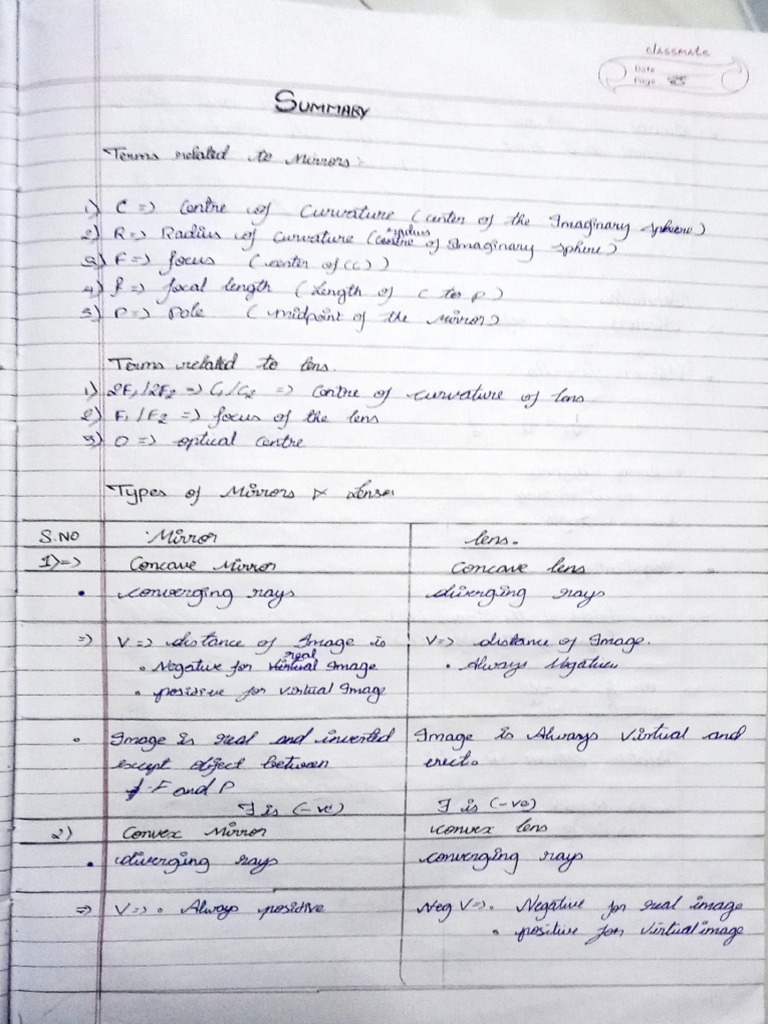 classmate
Date
Page
SUMMARY
Terms related to Mirrors:
1) C => Centre of Curvature (center of the Imaginary sphere)
2) R => Radius of curvature (radius of Imaginary sphere)
3) F => focus (center of (C))
4) f => focal length (Length of C to P)
5) P => Pole (midpoint of the Mirror)
Terms related to lens.
1) 2F1/2F2 => C1/C2 => Centre of curvature of lens
2) F1/F2 => focus of the lens
3) O => optical centre
Types of Mirrors & Lenses
S.NO Mirror lens.
1) => Concave Mirror Concave lens
• converging rays diverging rays
=> V => distance of Image is V => distance of Image.
• Negative for real Image • Always Negative
• positive for virtual Image
• Image is real and inverted Image is Always Virtual and
except object between erect.
F and P
F is (-ve) F is (-ve)
2) Convex Mirror convex lens
• diverging rays converging rays
=> V => • Always positive Neg V => • Negative for real image
• positive for virtual image